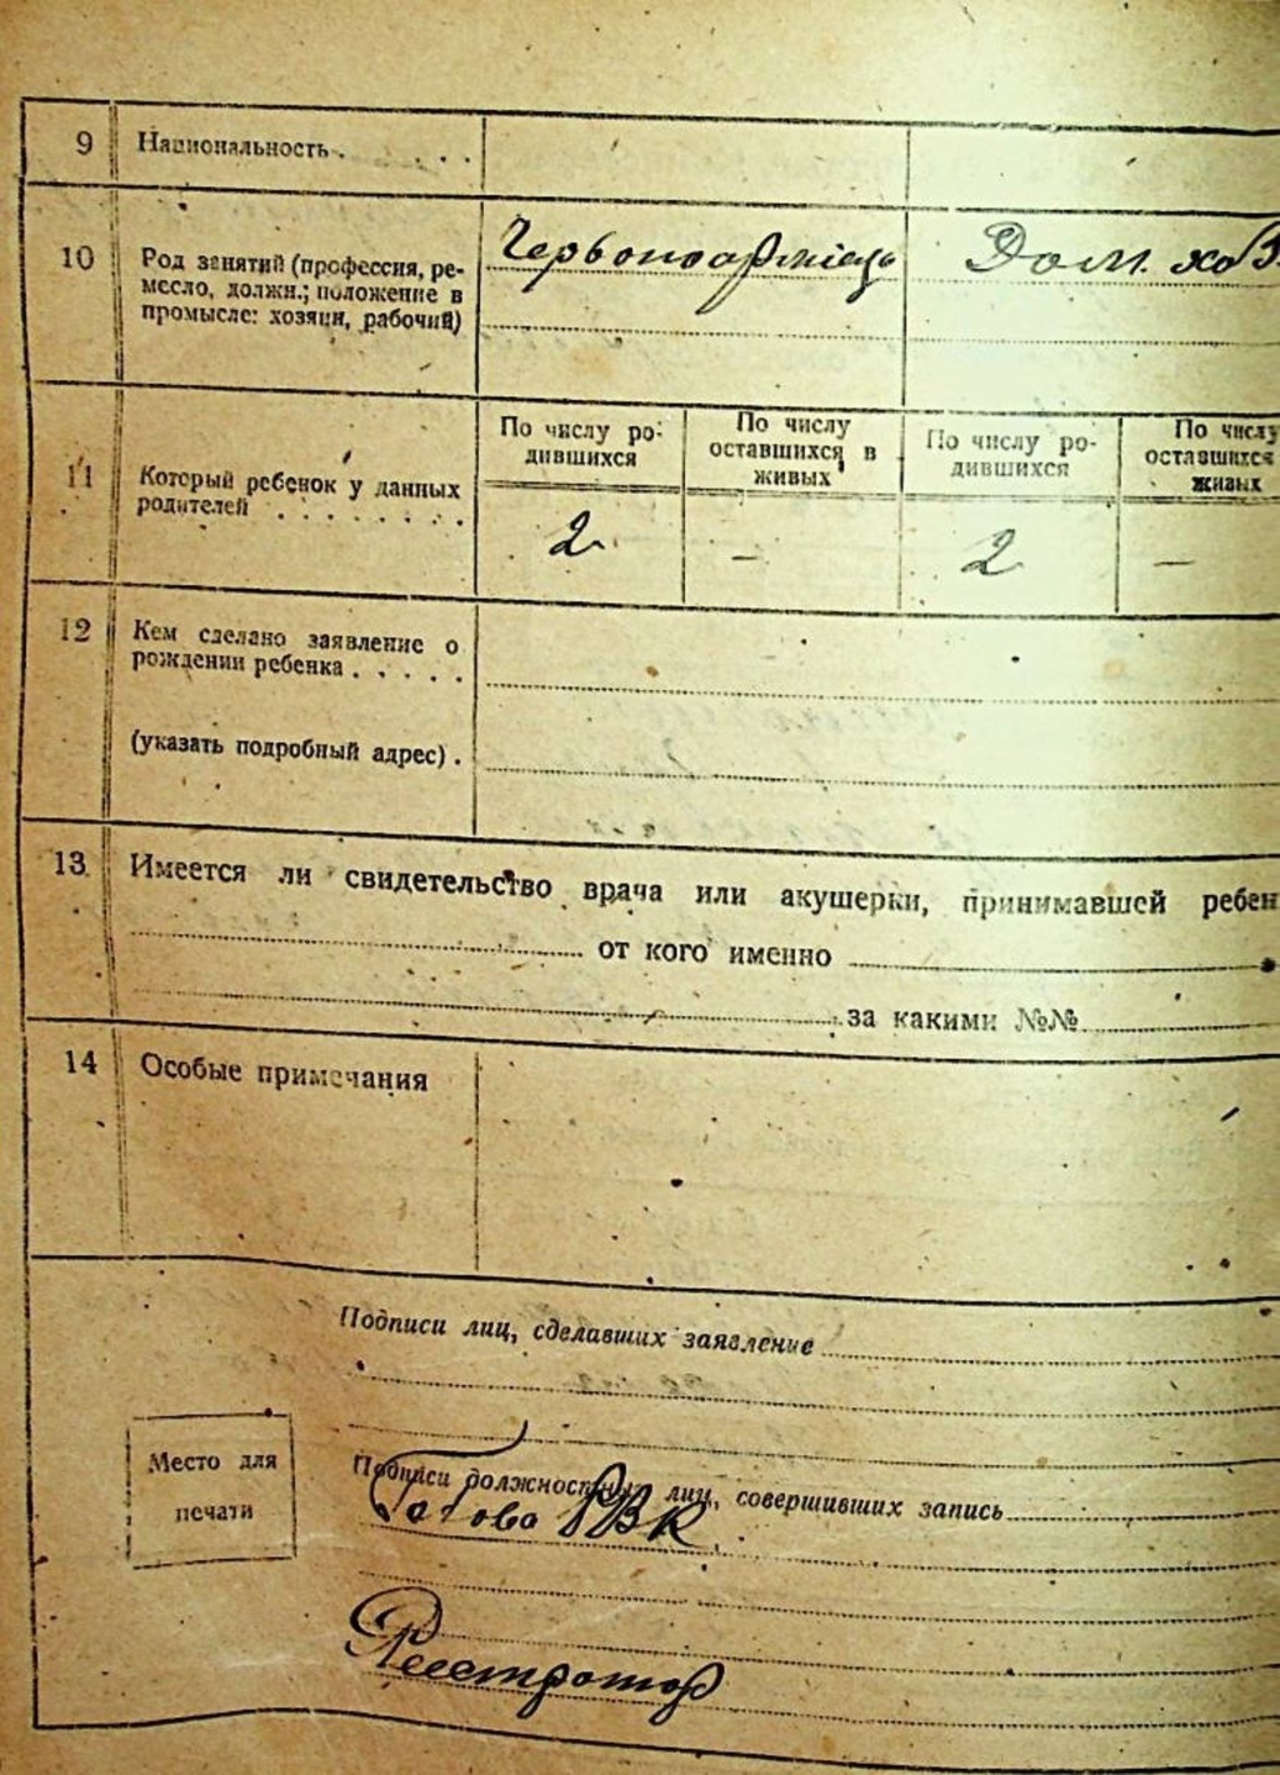 9 Национальность . . . . .
10 Род занятий (профессия, ре-
месло, должн.; положение в
промысле: хозяин, рабочий)
Червоноармієць
Дом. хоз.
11 Который ребенок у данных
родителей . . . . . . . .
По числу ро-
дившихся
По числу
оставшихся в
живых
По числу ро-
дившихся
По числу
оставшихся
живых
2 — 2 —
12 Кем сделано заявление о
рождении ребенка . . . . .
(указать подробный адрес) .
13. Имеется ли свидетельство врача или акушерки, принимавшей ребен
от кого именно
за какими №№
14 Особые примечания
Подписи лиц, сделавших заявление
Место для
печати
Подписи должностных лиц, совершивших запись
Голова РВК
Реєстратор